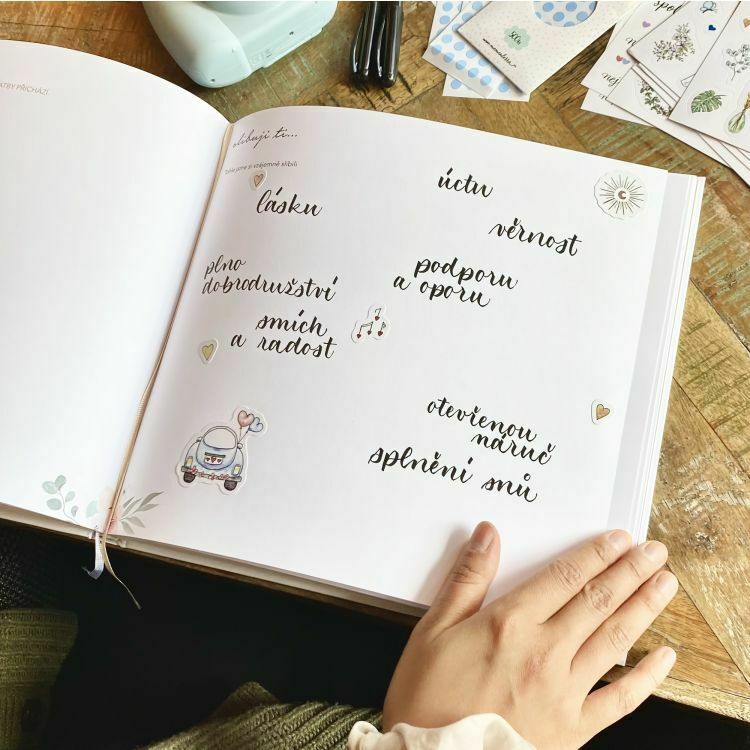 ATBY PŘICHÁZÍ
slibuji ti...
Toto jsme si vzájemně slíbili
lásku
úctu
věrnost
plno
dobrodružství
podporu
a oporu
smích
a radost
otevřenou
náruč
splnění snů